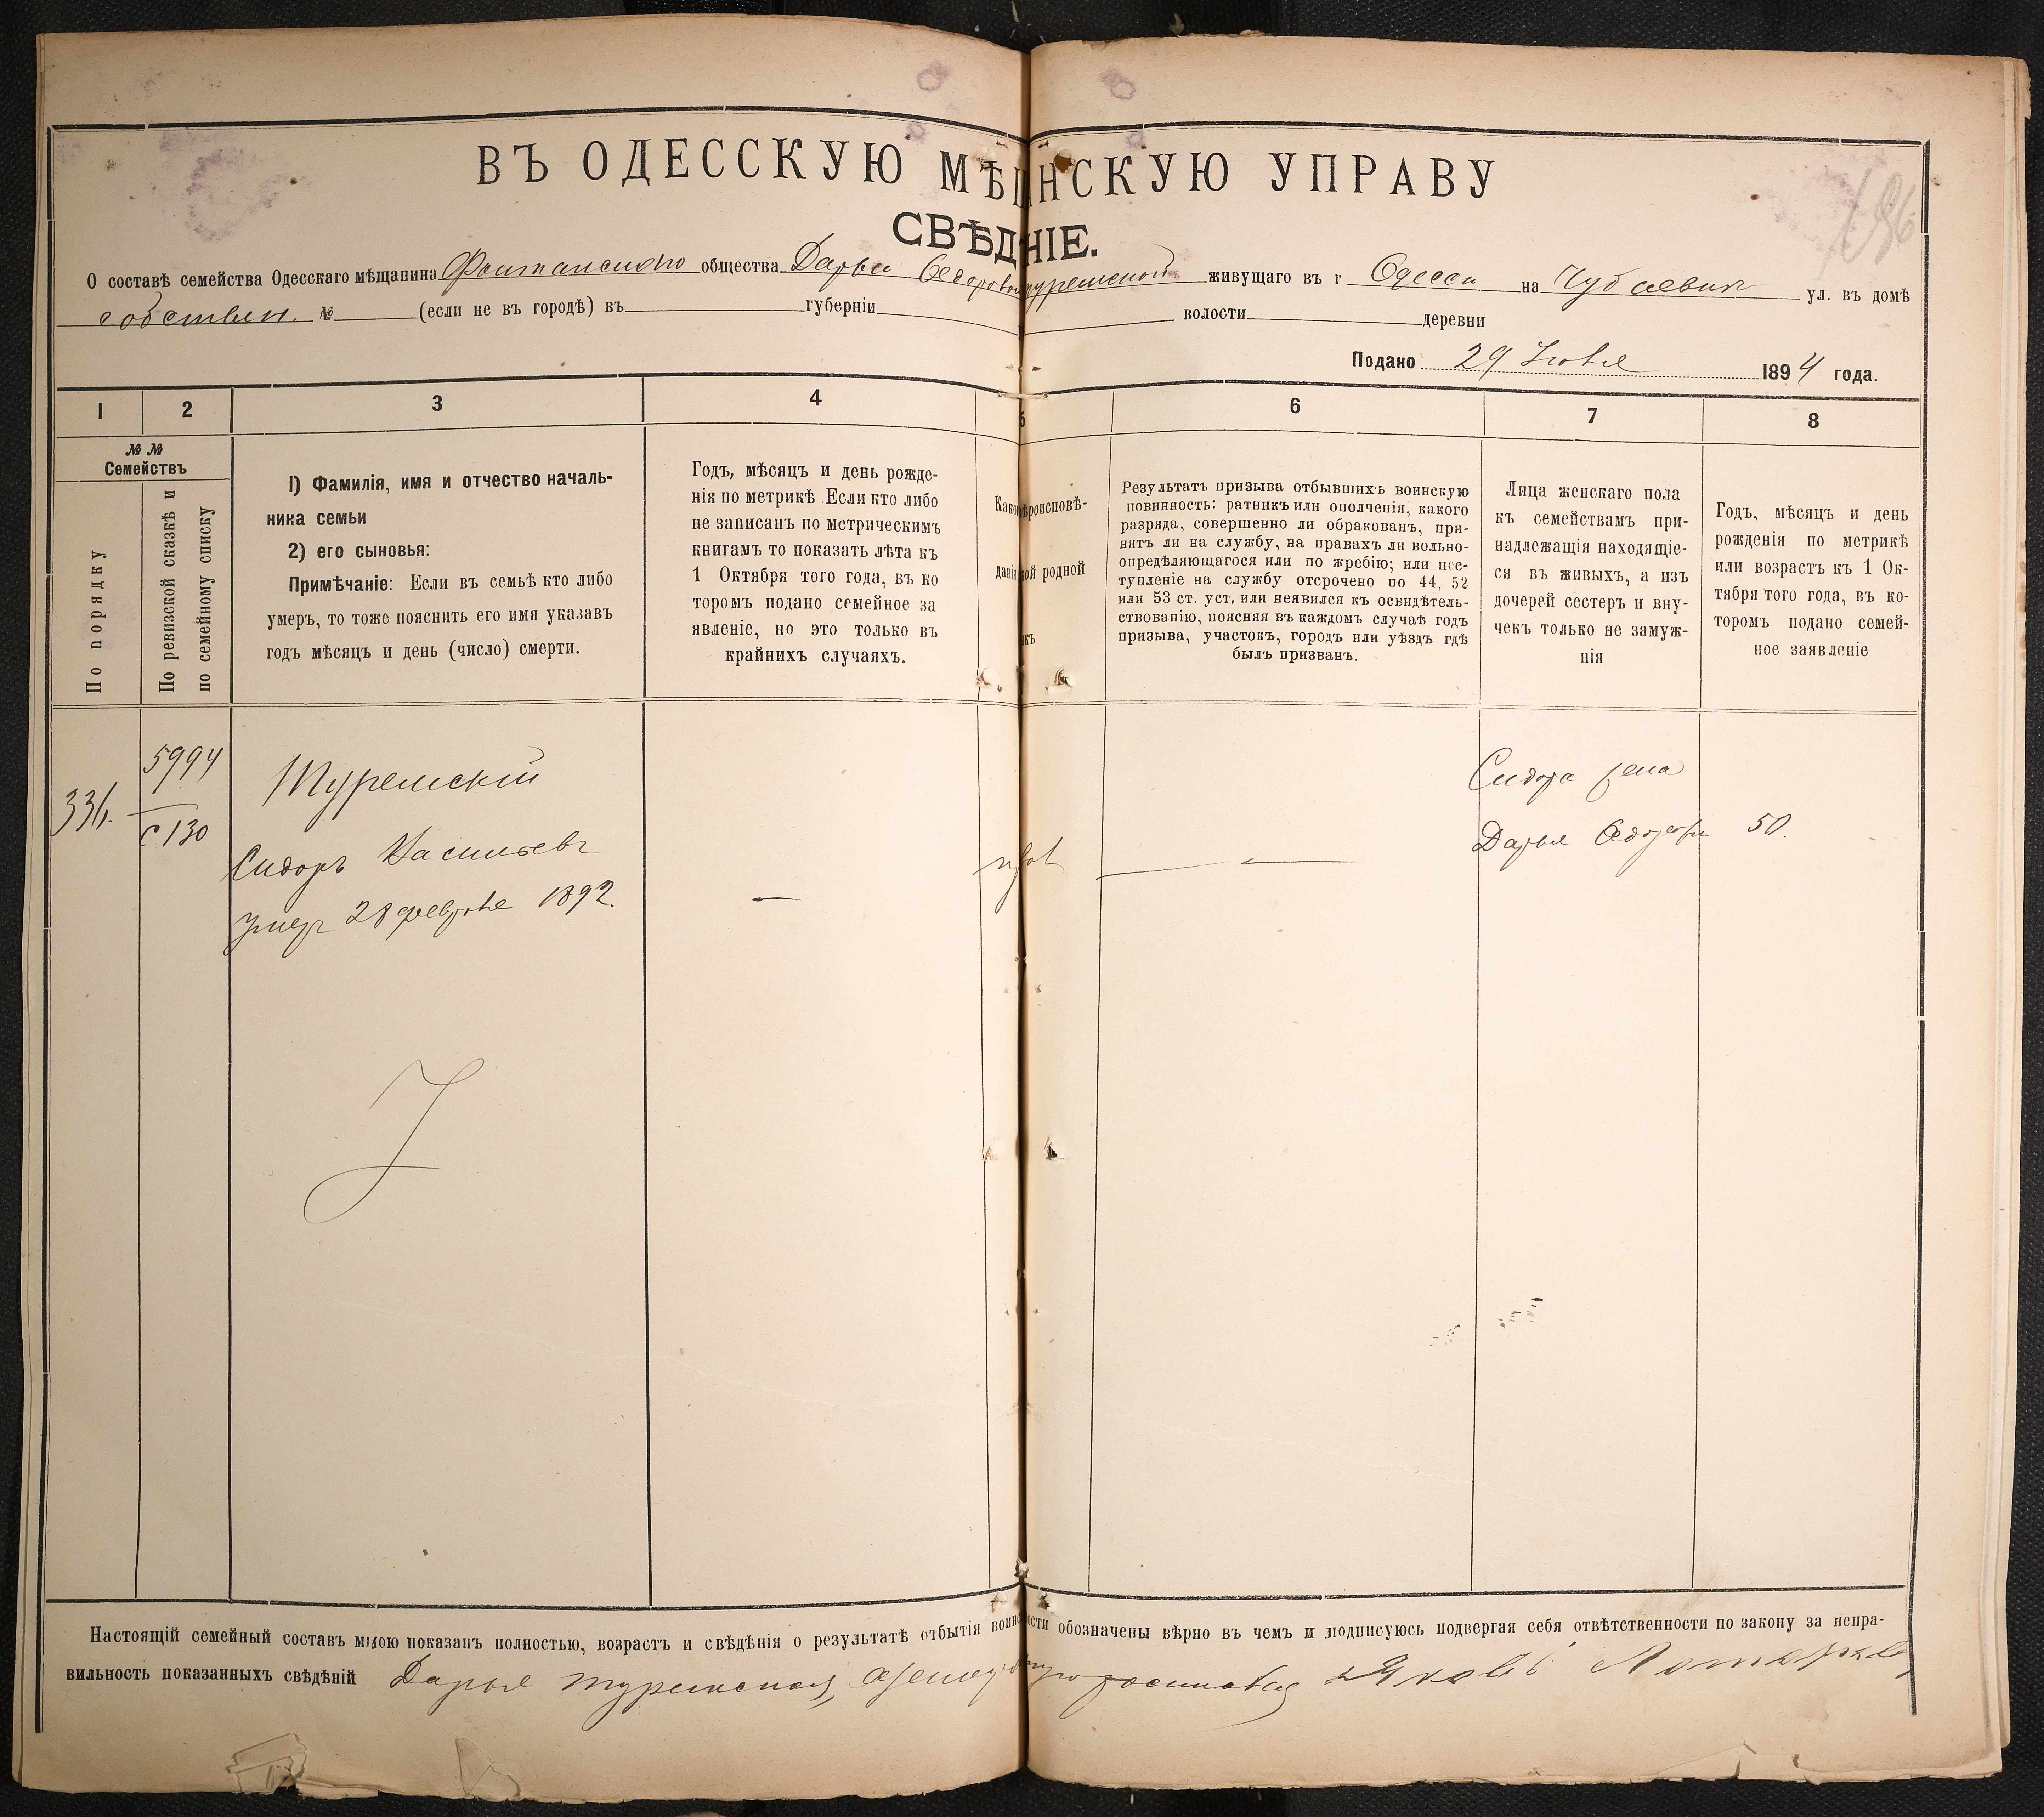 ВЪ ОДЕССКУЮ МѢЩАНСКУЮ УПРАВУ
СВѢДѢНІЕ.
О составѣ семейства Одесскаго мѣщанина Фонтанского общества Дарьи Федоровой Туремской живущаго въ г Одесси на Чубаевич ул. въ домѣ
собствен. № (если не въ городѣ) въ губерніи волости деревни
Подано 29 Июля 1894 года.
1 2 3 4 5 6 7 8
№№
Семействъ
По порядку
По ревизской сказкѣ и
по семейному списку
1) Фамилія, имя и отчество началь-
ника семьи
2) его сыновья:
Примѣчаніе: Если въ семьѣ кто либо
умеръ, то тоже пояснить его имя указавъ
годъ мѣсяцъ и день (число) смерти.
Годъ, мѣсяцъ и день рожде-
нія по метрикѣ Если кто либо
не записанъ по метрическимъ
книгамъ то показать лѣта къ
1 Октября того года, въ ко
торомъ подано семейное за
явленіе, но это только въ
крайнихъ случаяхъ.
вѣроисповѣ-
родной
Результатъ призыва отбывшихъ воинскую
повинность: ратникъ или ополченія, какого
разряда, совершенно ли обракованъ, при-
нятъ ли на службу, на правахъ ли вольно-
опредѣляющагося или по жребію; или пос-
тупленіе на службу отсрочено по 44, 52
или 53 ст. уст. или неявился къ освидѣтель-
ствованію, поясняя въ каждомъ случаѣ годъ
призыва, участокъ, городъ или уѣздъ гдѣ
былъ призванъ.
Лица женскаго пола
къ семействамъ при-
надлежащія находящіе-
ся въ живыхъ, а изъ
дочерей сестеръ и вну-
чекъ только не замуж-
нія
Годъ, мѣсяцъ и день
рожденія по метрикѣ
или возрастъ къ 1 Ок-
тября того года, въ ко-
торомъ подано семей-
ное заявленіе
336.
5994
С 130
Туремскій
Сидоръ Васильевъ
умеръ 28 февраля 1892.
прав
Сидора жена
Дарья Федорова 50.
Настоящій семейный составъ мною показанъ полностью, возрастъ и свѣдѣнія о результатѣ отбытія воинс сти обозначены вѣрно въ чемъ и подписуюсь подвергая себя отвѣтственности по закону за непра-
вильность показанныхъ свѣдѣній Дарья Туремская,